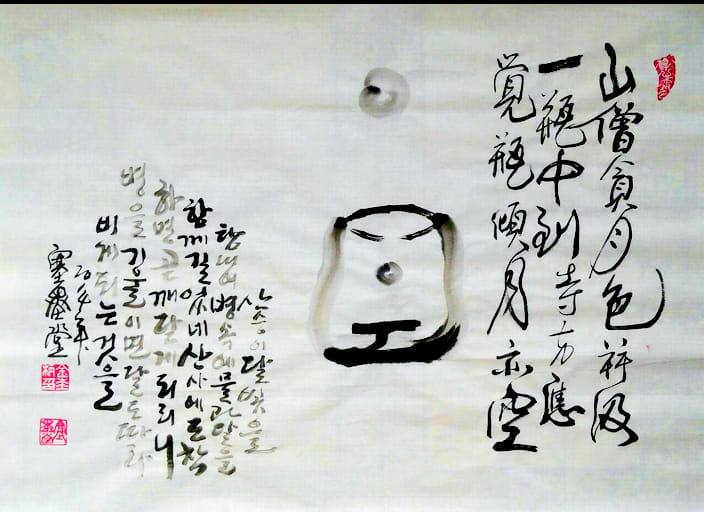 山僧貪月色并汲
一瓶中到寺方應
覺瓶傾月亦空
산승이 달빛을
탐내어 병속에 물과 달을
함께 길었네 산사에 도착
하면 곧 깨닫게 되리니
병을 기울이면 달도 따라
비게 되는 것을